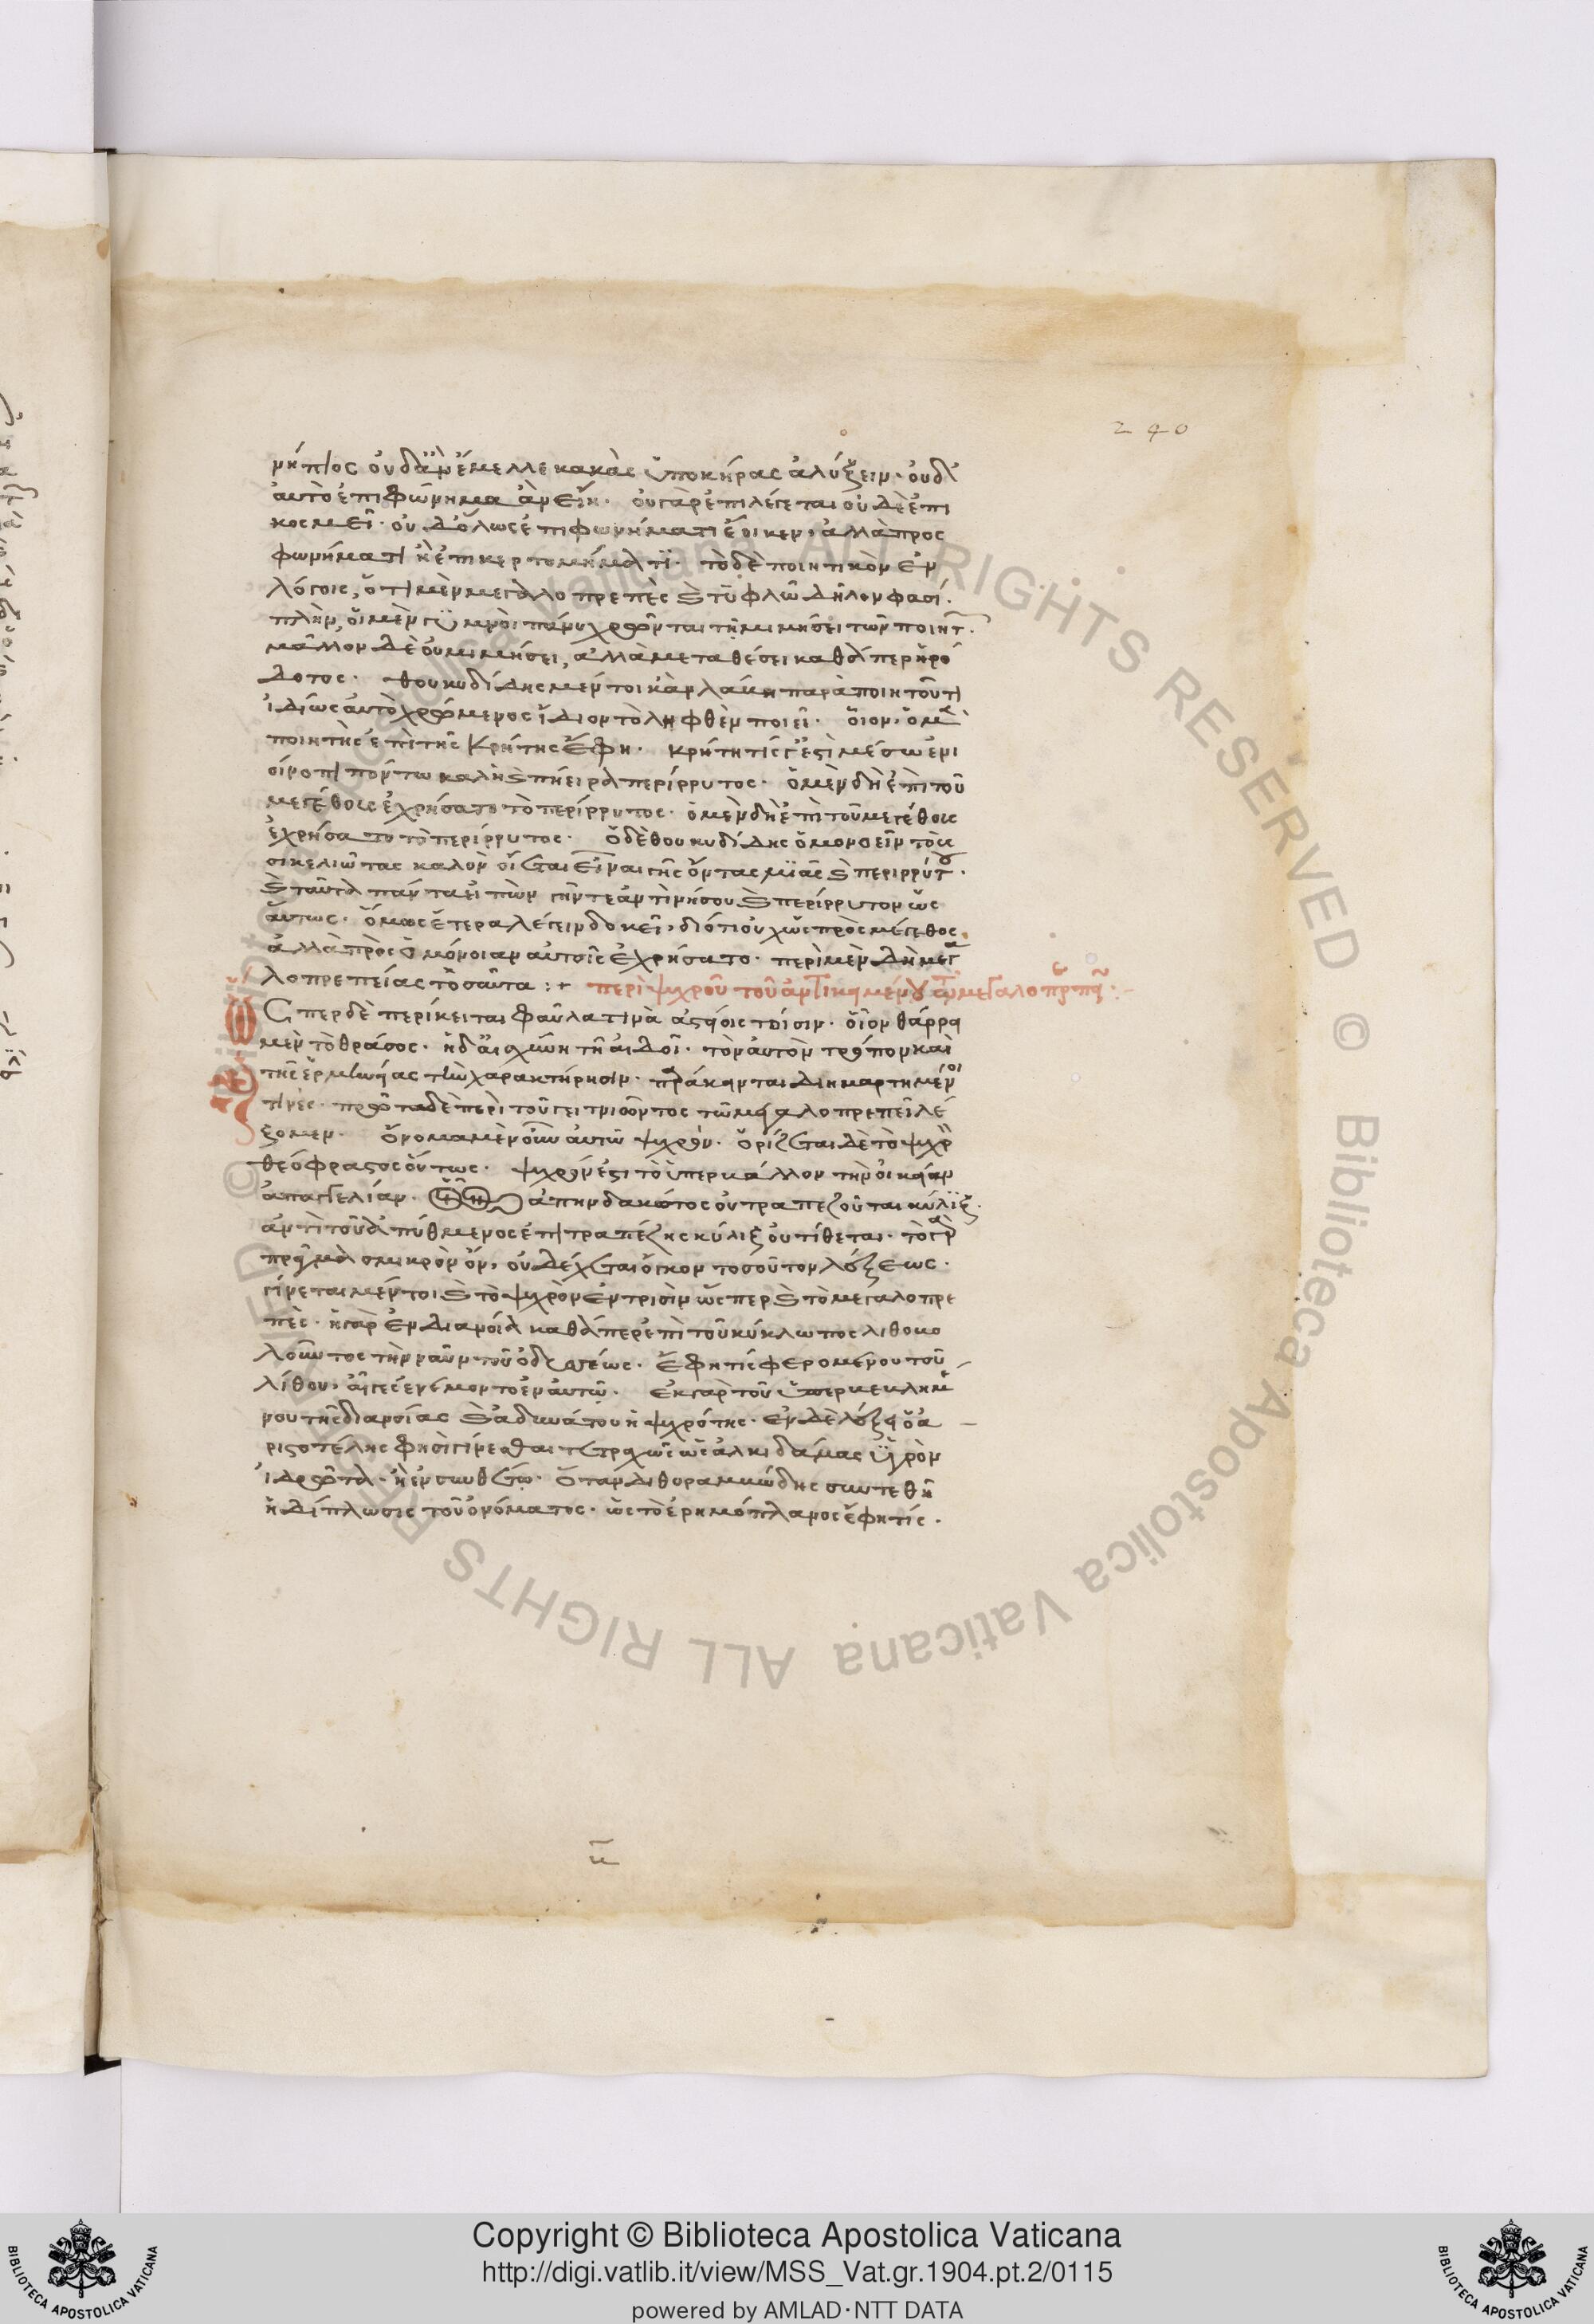 240
νήπιος οὐδ' ἄρ' ἔμελλε κακὰς ὑπὸ κῆρας ἀλύξειν· οὐδ'
αὐτὸ ἐπιφώνημα ἂν εἴη· οὐ γὰρ ἐπιλέγεται οὐδὲ ἐπι
κοσμεῖ· οὐδ' ὅλως ἐπιφωνήματι ἔοικεν, ἀλλὰ προσ
φωνήματι ἢ ἐπικερτομήματι· τὸ δὲ ποιητικὸν ἐν
λόγοις, ὅτι μὲν μεγαλοπρεπὲς καὶ τυφλῷ δῆλον φασί·
πλὴν, οἱ μὲν γυμνῇ πάνυ χρῶνται τῇ μιμήσει τῶν ποιητ
μᾶλλον δὲ οὐ μιμήσει, ἀλλὰ μεταθέσει καθάπερ ἡρό
δοτος· θουκυδίδης μέντοι κἂν λάβῃ παρὰ ποιητοῦ τι
ἰδίως αὐτῷ χρώμενος ἴδιον τὸ ληφθὲν ποιεῖ· οἷον, ὁ μὲν
ποιητὴς ἐπὶ τῆς Κρήτης ἔφη· κρήτη τίς γ' ἐστὶ μέσω ἐνι
οἴνοπι πόντω καλὴ καὶ πίειρα περίρρυτος· ὁ μὲν δὴ ἐπὶ τοῦ
μεγέθους ἐχρήσατο τὸ περίρρυτος· ὁ μὲν δὴ ἐπὶ τοῦ μεγέθους
ἐχρήσατο τὸ περίρρυτος· ὁ δὲ θουκυδίδης ὁμονοεῖν τοὺς
σικελιώτας καλὸν οἴεται εἶναι γῆς ὄντας μιᾶς καὶ περιρρύτου·
καὶ ταῦτα πάντα εἰπὼν γῆν τε ἀντὶ νήσου καὶ περίρρυτον ὡς
αὔτως· ὅμως ἕτερα λέγειν δοκεῖ, διότι οὐχ ὡς πρὸς μέγεθος
ἀλλὰ πρὸς ὁμόνοιαν αὐτοῖς ἐχρήσατο· περὶ μὲν δὴ μεγα
λοπρεπείας τοσαῦτα :+ περὶ ψυχροῦ τοῦ ἀντικειμένου τῶ μεγαλοπρεπεῖ :-
Ὥσπερ δὲ περίκειται φαῦλά τινα ἀστείοις τισίν· οἷον θάρρει
μὲν τὸ θράσος· ἡ δ' αἰσχύνη τῇ αἰδοῖ· τὸν αὐτὸν τρόπον καὶ
τῆς ἑρμηνείας τοῖς χαρακτῆρσιν· παράκεινται διημαρτημένοι
τινές· πρῶτα δὲ περὶ τοῦ γειτνιῶντος τῶ μεγαλοπρεπεῖ λέ
ξομεν· ὄνομα μὲν οὖν αὐτῶ ψυχρόν· ὁρίζεται δὲ τὸ ψυχρὸν
θεόφραστος οὕτως· ψυχρόν ἐστι τὸ ὑπερβάλλον τὴν οἰκείαν
ἀπαγγελίαν· ἀπυνδάκωτος οὐ τραπεζοῦται κύλιξ·
ἀντὶ τοῦ ἀπύθμενος ἐπὶ τραπέζης κύλιξ οὐ τίθεται· τὸ γὰρ
πρᾶγμα σμικρὸν ὄν, οὐ δέχεται ὄγκον τοσοῦτον λέξεως·
γίνεται μέντοι καὶ τὸ ψυχρὸν ἐν τρισὶν ὥσπερ καὶ τὸ μεγαλοπρε
πές· ἢ γὰρ ἐν διανοία καθάπερ ἐπὶ τοῦ κύκλωπος λιθοβο
λοῦντος τὴν ναῦν τοῦ ὀδυσσέως· ἔφη τίς φερομένου τοῦ
λίθου, αἶγες ἐνέμοντο ἐν αὐτῶ· ἐκ γὰρ τοῦ ὑπερβεβλημέ
νου τῆς διανοίας καὶ ἀδυνάτου ἡ ψυχρότης· ἐν δὲ λέξει ὁ ἀ
ριστοτέλης φησὶ γίνεσθαι τετραχῶς ὡς ἀλκιδάμας ὑγρὸν
ἱδρῶτα· ἢ ἐν συνθέτω· ὅταν διθυραμβώδης συντεθῆ
ἡ δίπλωσις τοῦ ὀνόματος· ὡς τὸ ἐρημόπλανος ἔφη τίς·
Copyright © Biblioteca Apostolica Vaticana
http://digi.vatlib.it/view/MSS_Vat.gr.1904.pt.2/0115
powered by AMLAD·NTT DATA